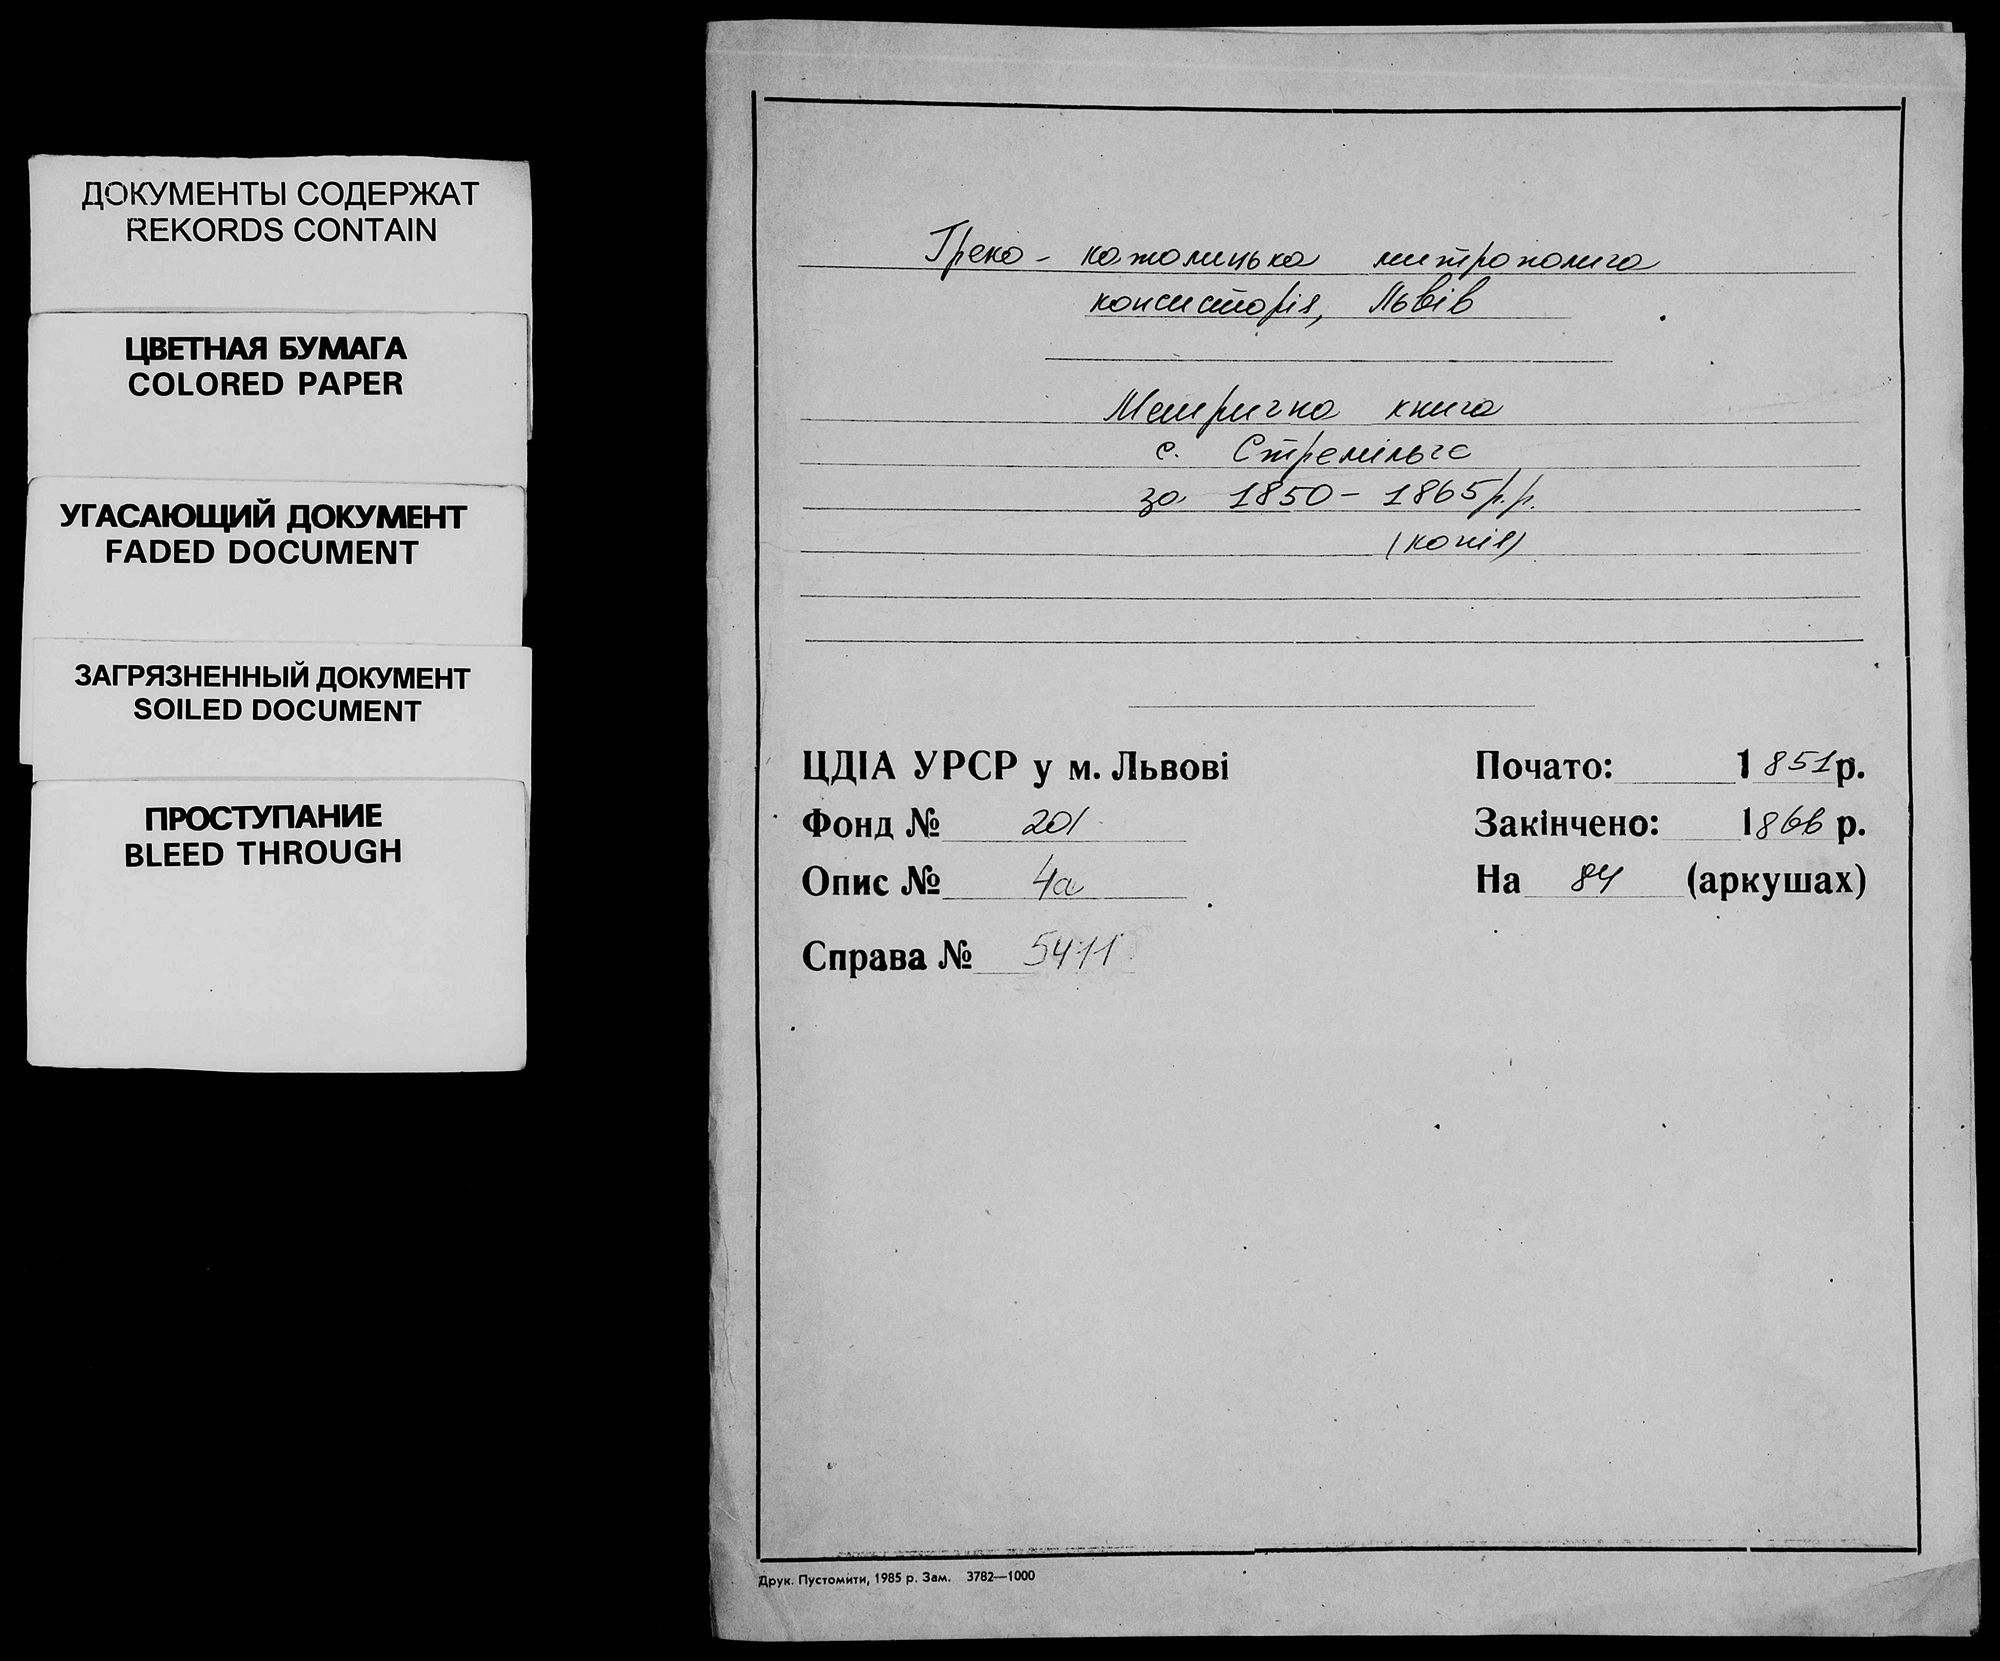 ДОКУМЕНТЫ СОДЕРЖАТ
REKORDS CONTAIN
ЦВЕТНАЯ БУМАГА
COLORED PAPER
УГАСАЮЩИЙ ДОКУМЕНТ
FADED DOCUMENT
ЗАГРЯЗНЕННЫЙ ДОКУМЕНТ
SOILED DOCUMENT
ПРОСТУПАНИЕ
BLEED THROUGH
Греко - католицька митрополича
консисторія, Львів
Метрична книга
с. Стремільче
за 1850 - 1865 р.р.
(копія)
ЦДІА УРСР у м. Львові
Фонд № 201
Опис № 4а
Справа № 5411
Почато: 1851 р.
Закінчено: 1866 р.
На 84 (аркушах)
Друк. Пустомити, 1985 р. Зам. 3782—1000